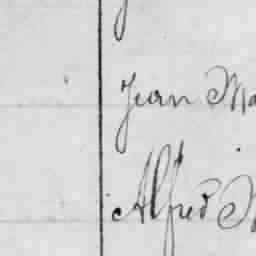 Jean Ma
Alfred